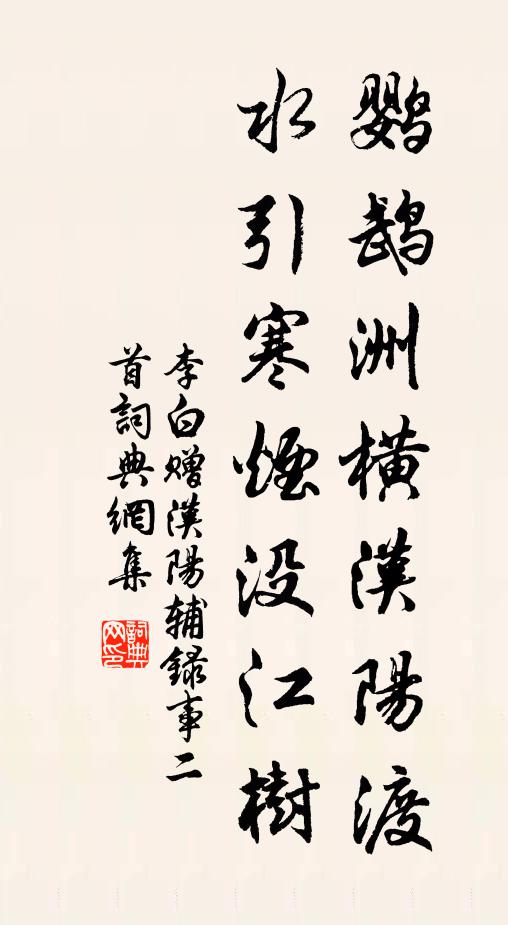 鸚鵡洲橫漢陽渡
水引寒煙没江樹
李白赠漢陽輔録事二
首詞典網集
詞典网印